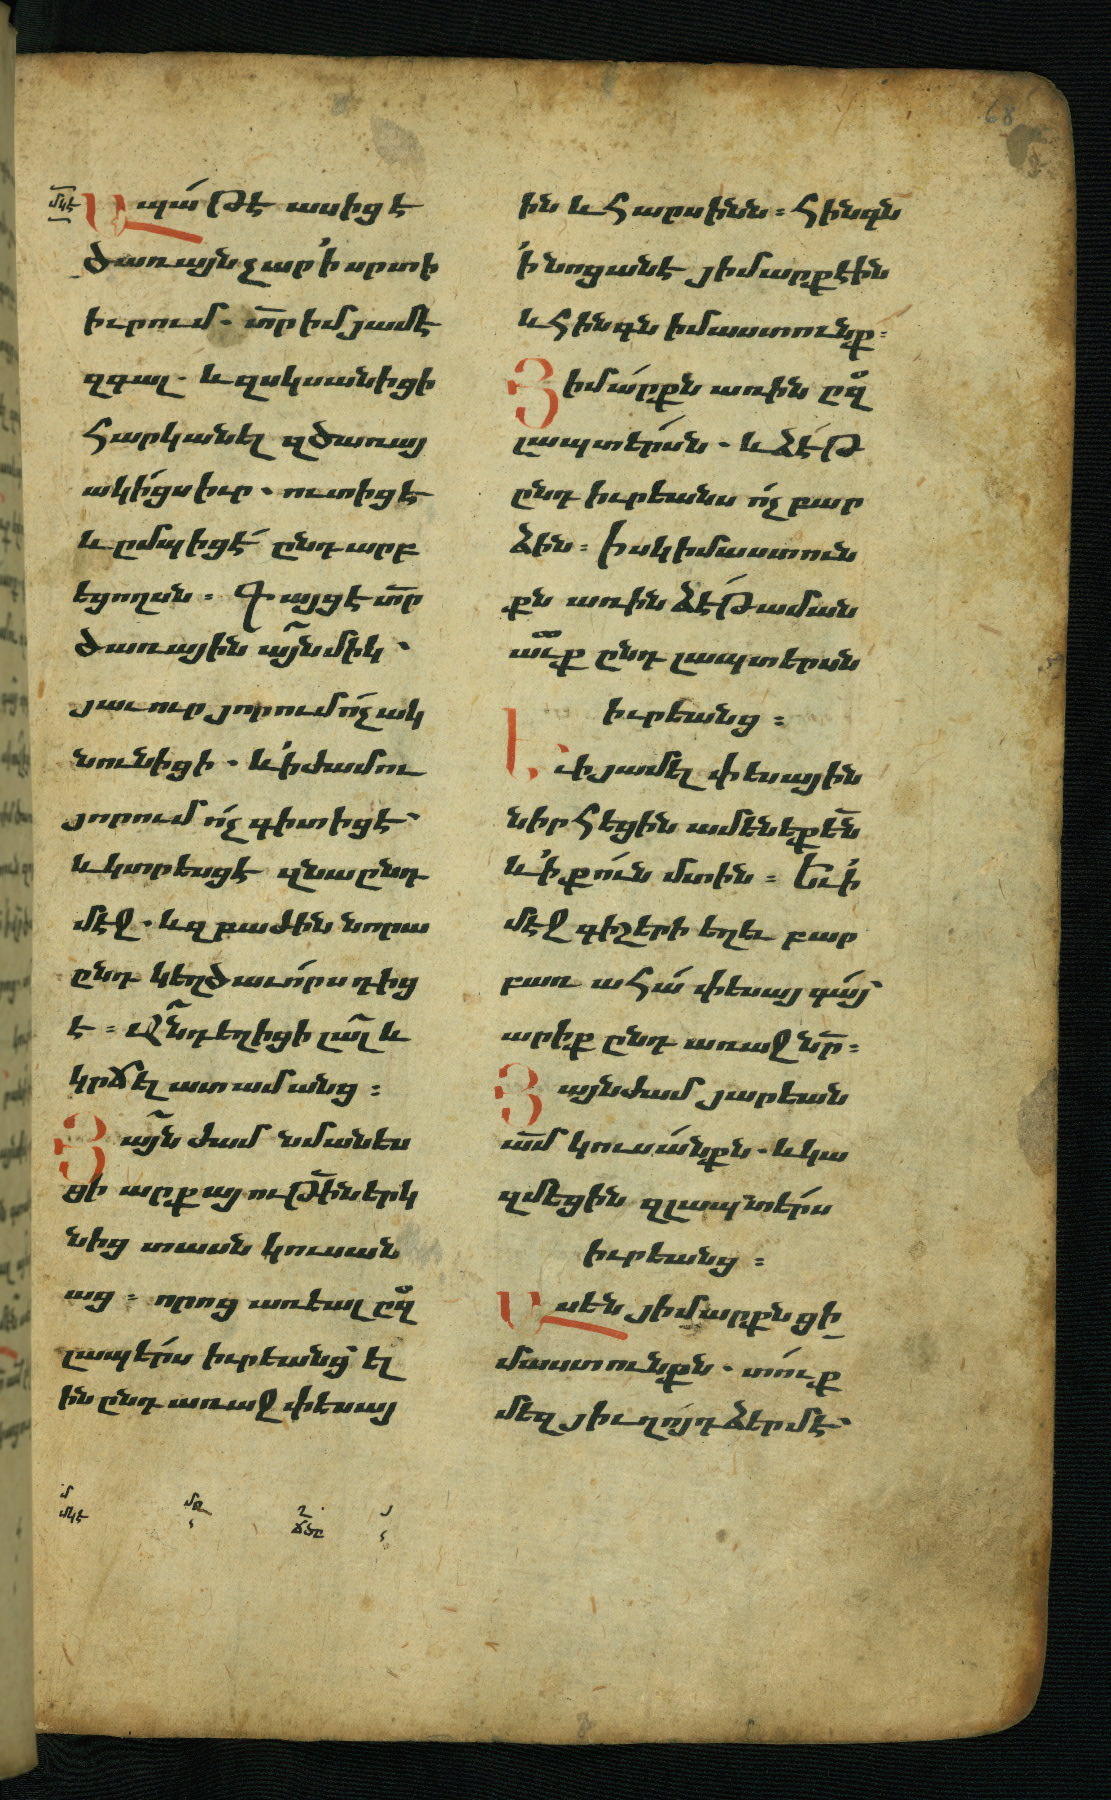 68
մկէ
Ապա թէ ասիցէ
ծառայն չար ՚ի սրտի
իւրում. տր իմ յամէ
զգալ. և զսկսանիցի
հարկանել զծառայ
ակիցս իւր. ուտիցէ
և ըմպիցէ ընդ արբ
եցողսն։ Գայցէ տր
ծառային այն միկ.
յաւուր յորում ոչ ակ
նունիցի. և ՚ի ժամու
յորում ոչ գիտիցէ՝
և կտրեսցէ զնա ընդ
մէջ. և զբաժին նորա
ընդ կեղծաւորս դից
է։ Անդ եղիցի լալ և
կրճել ատամանց։
Յայն ժամ նմանես
ցի արքայութին երկ
նից տասն կուսան
աց։ որոց առեալ ըզ
լապէրս իւրեանց՝ ել
ին ընդ առաջ փեսայ
մ
մկէ
մռ
ղ
ճծը
յ
ին և հարսինն։ Հինգն
՚ի նոցանէ յիմարք էին
և հինգն իմաստունք։
Յիմարքն առին ըզ
լապտերսն. և ձէթ
ընդ իւրեանս ոչ բար
ձին։ Իսկ իմաստուն
քն առին ձէթ աման
աւք ընդ լապտերսն
իւրեանց։
Եւ ՚ի յամել փեսային
նիրհեցին ամենեքեն
և ՚ի քուն մտին։ Եւ ՚ի
մէջ գիշերի եղեւ բար
բառ ահա փեսայ գայ՝
արիք ընդ առաջ նր։
Յայնժամ յարեան
ամ կուսանքն. և կա
զմեցին զլապտերս
իւրեանց։
Ասեն յիմարքն ցի
մաստունքն. տուք
մեզ յիւղոյդ ձերմէ՝